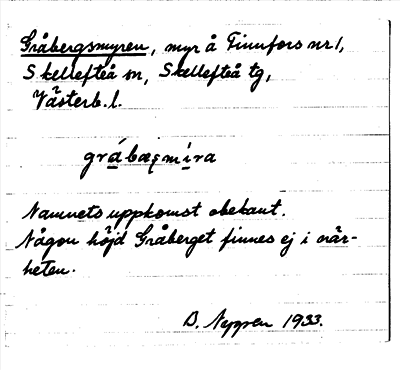 Gråbergsmyren, myr å Finnfors nr 1,
Skellefteå sn, Skellefteå tg,
Västerb. l.
grábæȩmíra
Namnets uppkomst obekant.
Någon höjd Gråberget finnes ej i när-
heten.
1933.